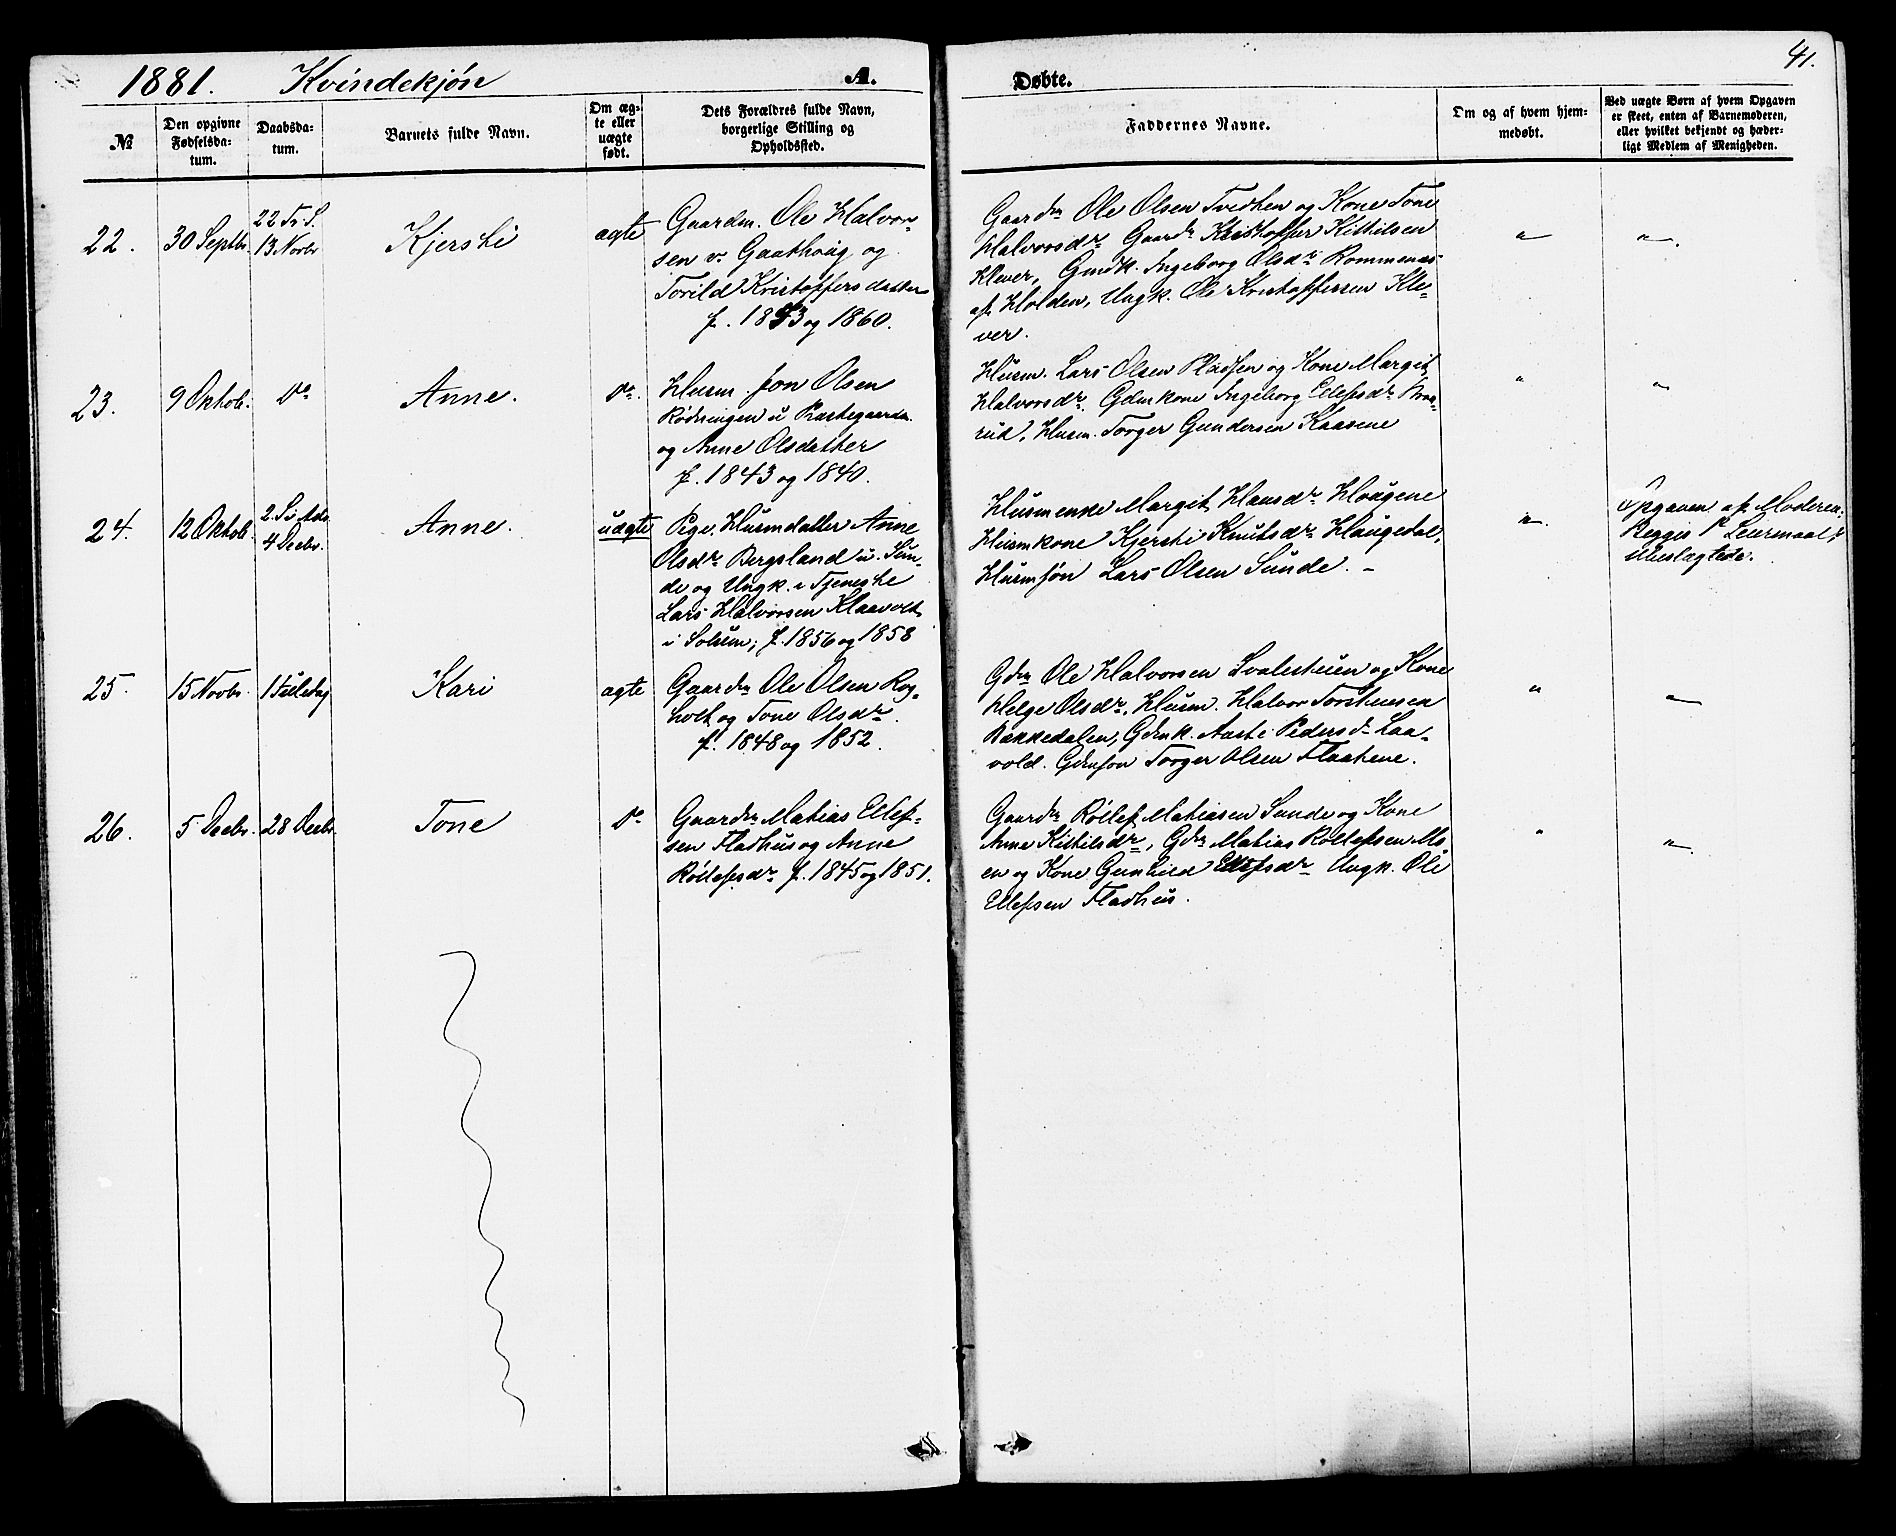 1881. Kvindekjön A. Døbte. 41.
№
Den opgivne Fødselsda-tum.
Daabsda-tum.
Barnets fulde Navn.
Om æg-te eller uægte født.
Dets Forældres fulde Navn, borgerlige Stilling og Opholdssted.
Faddernes Navne.
Om og af hvem hjem-medøbt.
Ved uægte Børn af hvem Opgaven er skeet, enten af Barnemoderen, eller hvilket bekjendt og hæder-ligt Medlem af Menigheden.
22.
30 Septbr.
22 Tr. S.
13 Novbr
Kjersti
ægte
Gaardm. Ole Halvor-
sen v. Gaathaug og
Torild Kristoffersdatter
f. 1853 og 1860.
Gaardm Ole Olsen Tvedten og Kone Tone
Halvorsdr. Gaardm Kristoffer Kittilsen
Klever, Gmdk. Ingeborg Olsdr Rommenæs
af Holden, Ungk. Ole Kristoffersen Kle-
ver.
"
"
23.
9 Oktob.
Do
Anne.
Do.
Husm. Jon Olsen
Rödningen u Præstegaarden
og Anne Olsdatter
f. 1843 og 1840.
Husm. Lars Olsen Pladsen og Kone Margit
Halvorsdr. Gdmkone Ingeborg Ellefsdr Braa-
rud, Husm. Torger Gundersen Kaasene
"
"
24.
12 Oktob.
2. Si Adv.
4 Decbr.
Anne.
uægte
Pige, Husmdatter Anne
Olsdr Bergsland u. Sun-
de og Ungk. i Tjeneste
Lars Halvorsen Klaavolt
i Solum; f. 1856 og 1858
Husmenke Margit Hansdr Haugene
Husmkone Kjersti Knutsdr Haugedal,
Husmsön Lars Olsen Sunde. -
"
Opgaven af Moderen.
Begges 1ste Leiermaal;
Ubeslægtede.
25.
15 Novbr
1 Juledag
Kari
ægte
Gaardm Ole Olsen Rog-
holt og Tone Olsdr.
f. 1848 og 1852.
Gdm Ole Halvorsen Svalestuen og Kone
Helge Olsdr, Husm. Halvor Torstensen
Bakkedalen, Gdmk. Aaste Pedersdr Laa-
vold. Gdmsön Torger Olsen Flaatene.
"
"
26.
5 Decbr.
28 Decbr.
Tone
Do
Gaardm Matias Ellef-
sen Fladhus og Anne
Röllefsdr f. 1845 og 1851.
Gaardm Röllef Matiasen Sunde og Kone
Anne Kittilsdr, Gdm Matias Röllefsen Mo-
en og Kone Gunhild Ellefsdr Ungk. Ole
Ellefsen Fladhus.
"
"